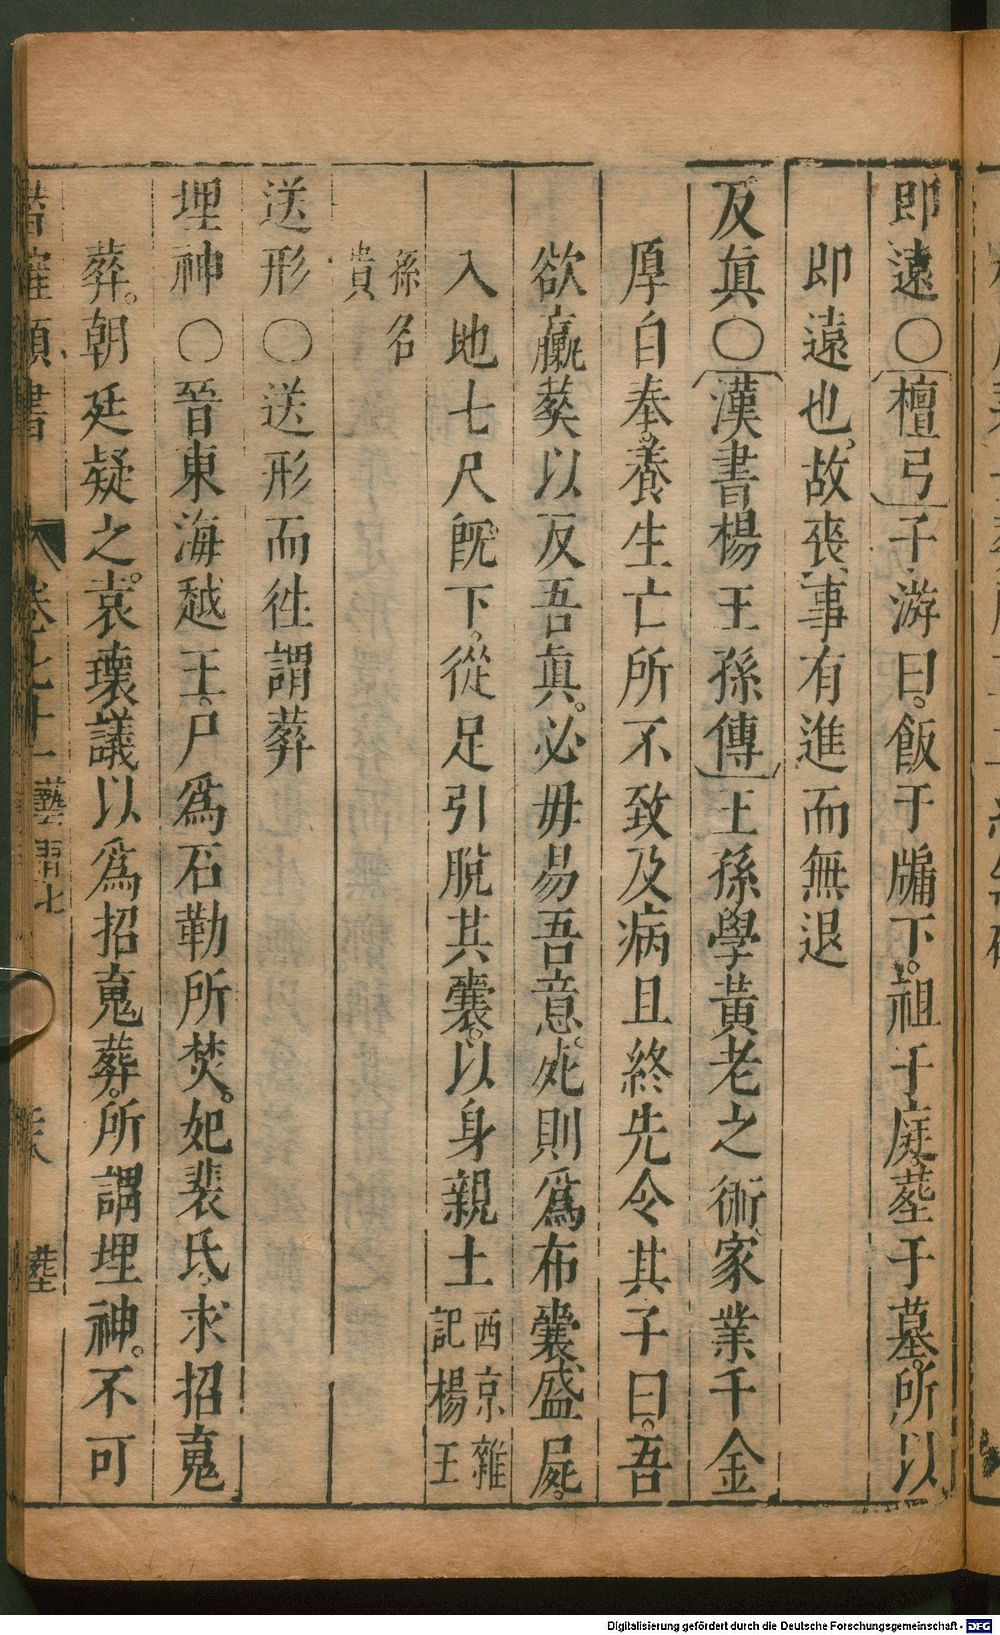 即遠〇檀弓子游曰飯于牖下祖于庭塟于墓所以
即遠也故喪事有進而無退
及眞〇漢書楊王孫傳王孫學黃老之術家業千金
厚自奉養生亡所不致及病且終先令其子曰吾
欲臝葬以反吾眞必毋易吾意死則爲布囊盛屍
入地七尺旣下從足引脫其囊以身親土西京雜
記楊王
孫名
貴
送形〇送形而徃謂葬
埋神〇晉東海越王尸爲石勒所焚妃裴氏求招䰟
葬朝廷疑之袁瓌議以爲招䰟葬所謂埋神不可
類書 卷七十一 塟
Digitalisierung gefördert durch die Deutsche Forschungsgemeinschaft - DFG